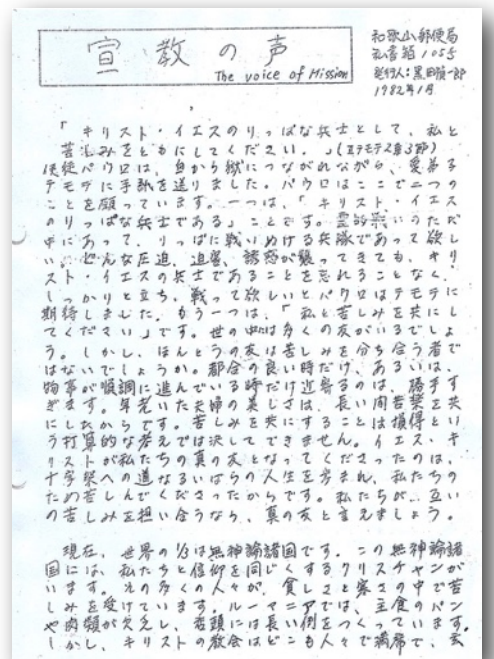 宣教の声
The voice of Mission
和歌山郵便局
私書箱1055
発行人:黒田禎一郎
1982年1月
「キリスト・イエスのりっぱな兵士として、私と
苦しみをともにしてください。」(Ⅱテモテ2章3節)
使徒パウロは、自から獄につながれながら、愛弟子
テモテに手紙を送りました。パウロはここで二つの
ことを願っています。一つは、「キリスト・イエス
のりっぱな兵士である」ことです。霊的戦いのただ
中にあって、りっぱに戦いぬける兵隊であって欲し
い。どんな圧迫、迫害、誘惑が襲ってきても、キリ
スト・イエスの兵士であることを忘れることなく、
しっかりと立ち、戦って欲しいとパウロはテモテに
期待しました。もう一つは、「私と苦しみを共にし
てください」です。世の中には多くの友がいるでしょ
う。しかし、ほんとうの友は苦しみを分ち合う者で
はないでしょうか。都合の良い時だけ、あるいは、
物事が順調に進んでいる時だけ近寄るのは、勝手す
ぎます。年老いた夫婦の美しさは、長い間苦楽を共
にしたからです。苦しみを共にすることは損得とい
う打算的な考えでは決してできません。イエス・キ
リストが私たちの真の友となってくださったのは、
十字架への道なるいばらの人生を歩まれ、私たちの
ため苦しんでくださったからです。私たちが、互い
の苦しみを担い合うなら、真の友と言えましょう。
現在、世界の1/3は無神論諸国です。この無神論諸
国には、私たちと信仰を同じくするクリスチャンが
います。その多くの人々が、貧しさと寒さの中で苦
しみを受けています。ルーマニアでは、主食のパン
や肉類が欠乏し、店頭には長い列をつくっています。
しかし、キリストの教会はどこも人々で満席で、